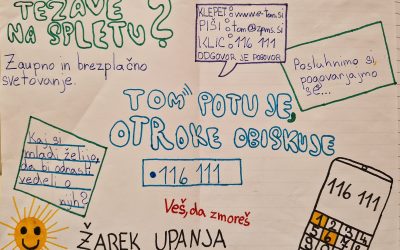 TEŽAVE
NA SPLETU?
Zaupno in brezplačno
svetovanje.
KLEPET: www.e-tom.si
PIŠI: tom@zpms.si
KLIC: 116 111
ODGOVOR JE POGOVOR
Posluhnimo si,
pogovarjajmo
se...
TOM" POTUJE,
OTROKE OBISKUJE
116 111
Kaj si
mladi želijo,
da bi odrasli
vedeli o
njih?
Veš, da zmoreš
ŽAREK UPANJA
116 111
1
4 5 6